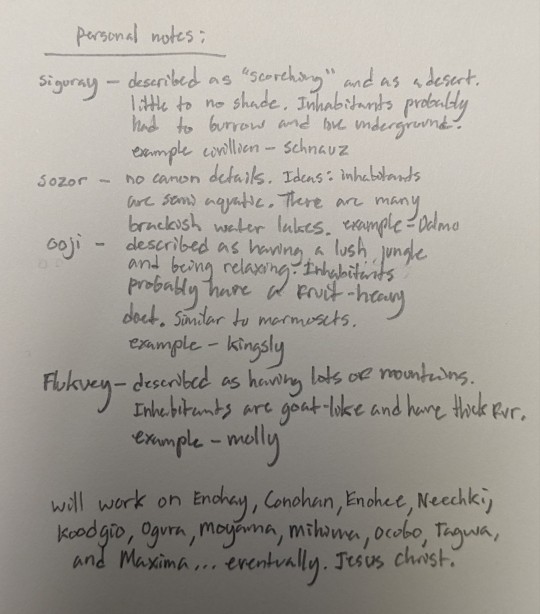 personal notes:
Sigoray - described as "scorching" and as a desert.
little to no shade. Inhabitants probably
had to burrow and live underground.
example civillian - Schnauz
Sozor - no canon details. Ideas: inhabitants
are semi aquatic. There are many
brackish water lakes. example - Dalmo
Ooji - described as having a lush jungle
and being relaxing. Inhabitants
probably have a fruit-heavy
diet. Similar to marmosets.
example - kingsly
Flukvey - described as having lots of mountains.
Inhabitants are goat-like and have thick fur.
example - molly
will work on Enohay, Conohan, Enohee, Neechki,
Koodgio, Ogura, Moyama, mihima, ocobo, Tagwa,
and Maxima... eventually. Jesus christ.